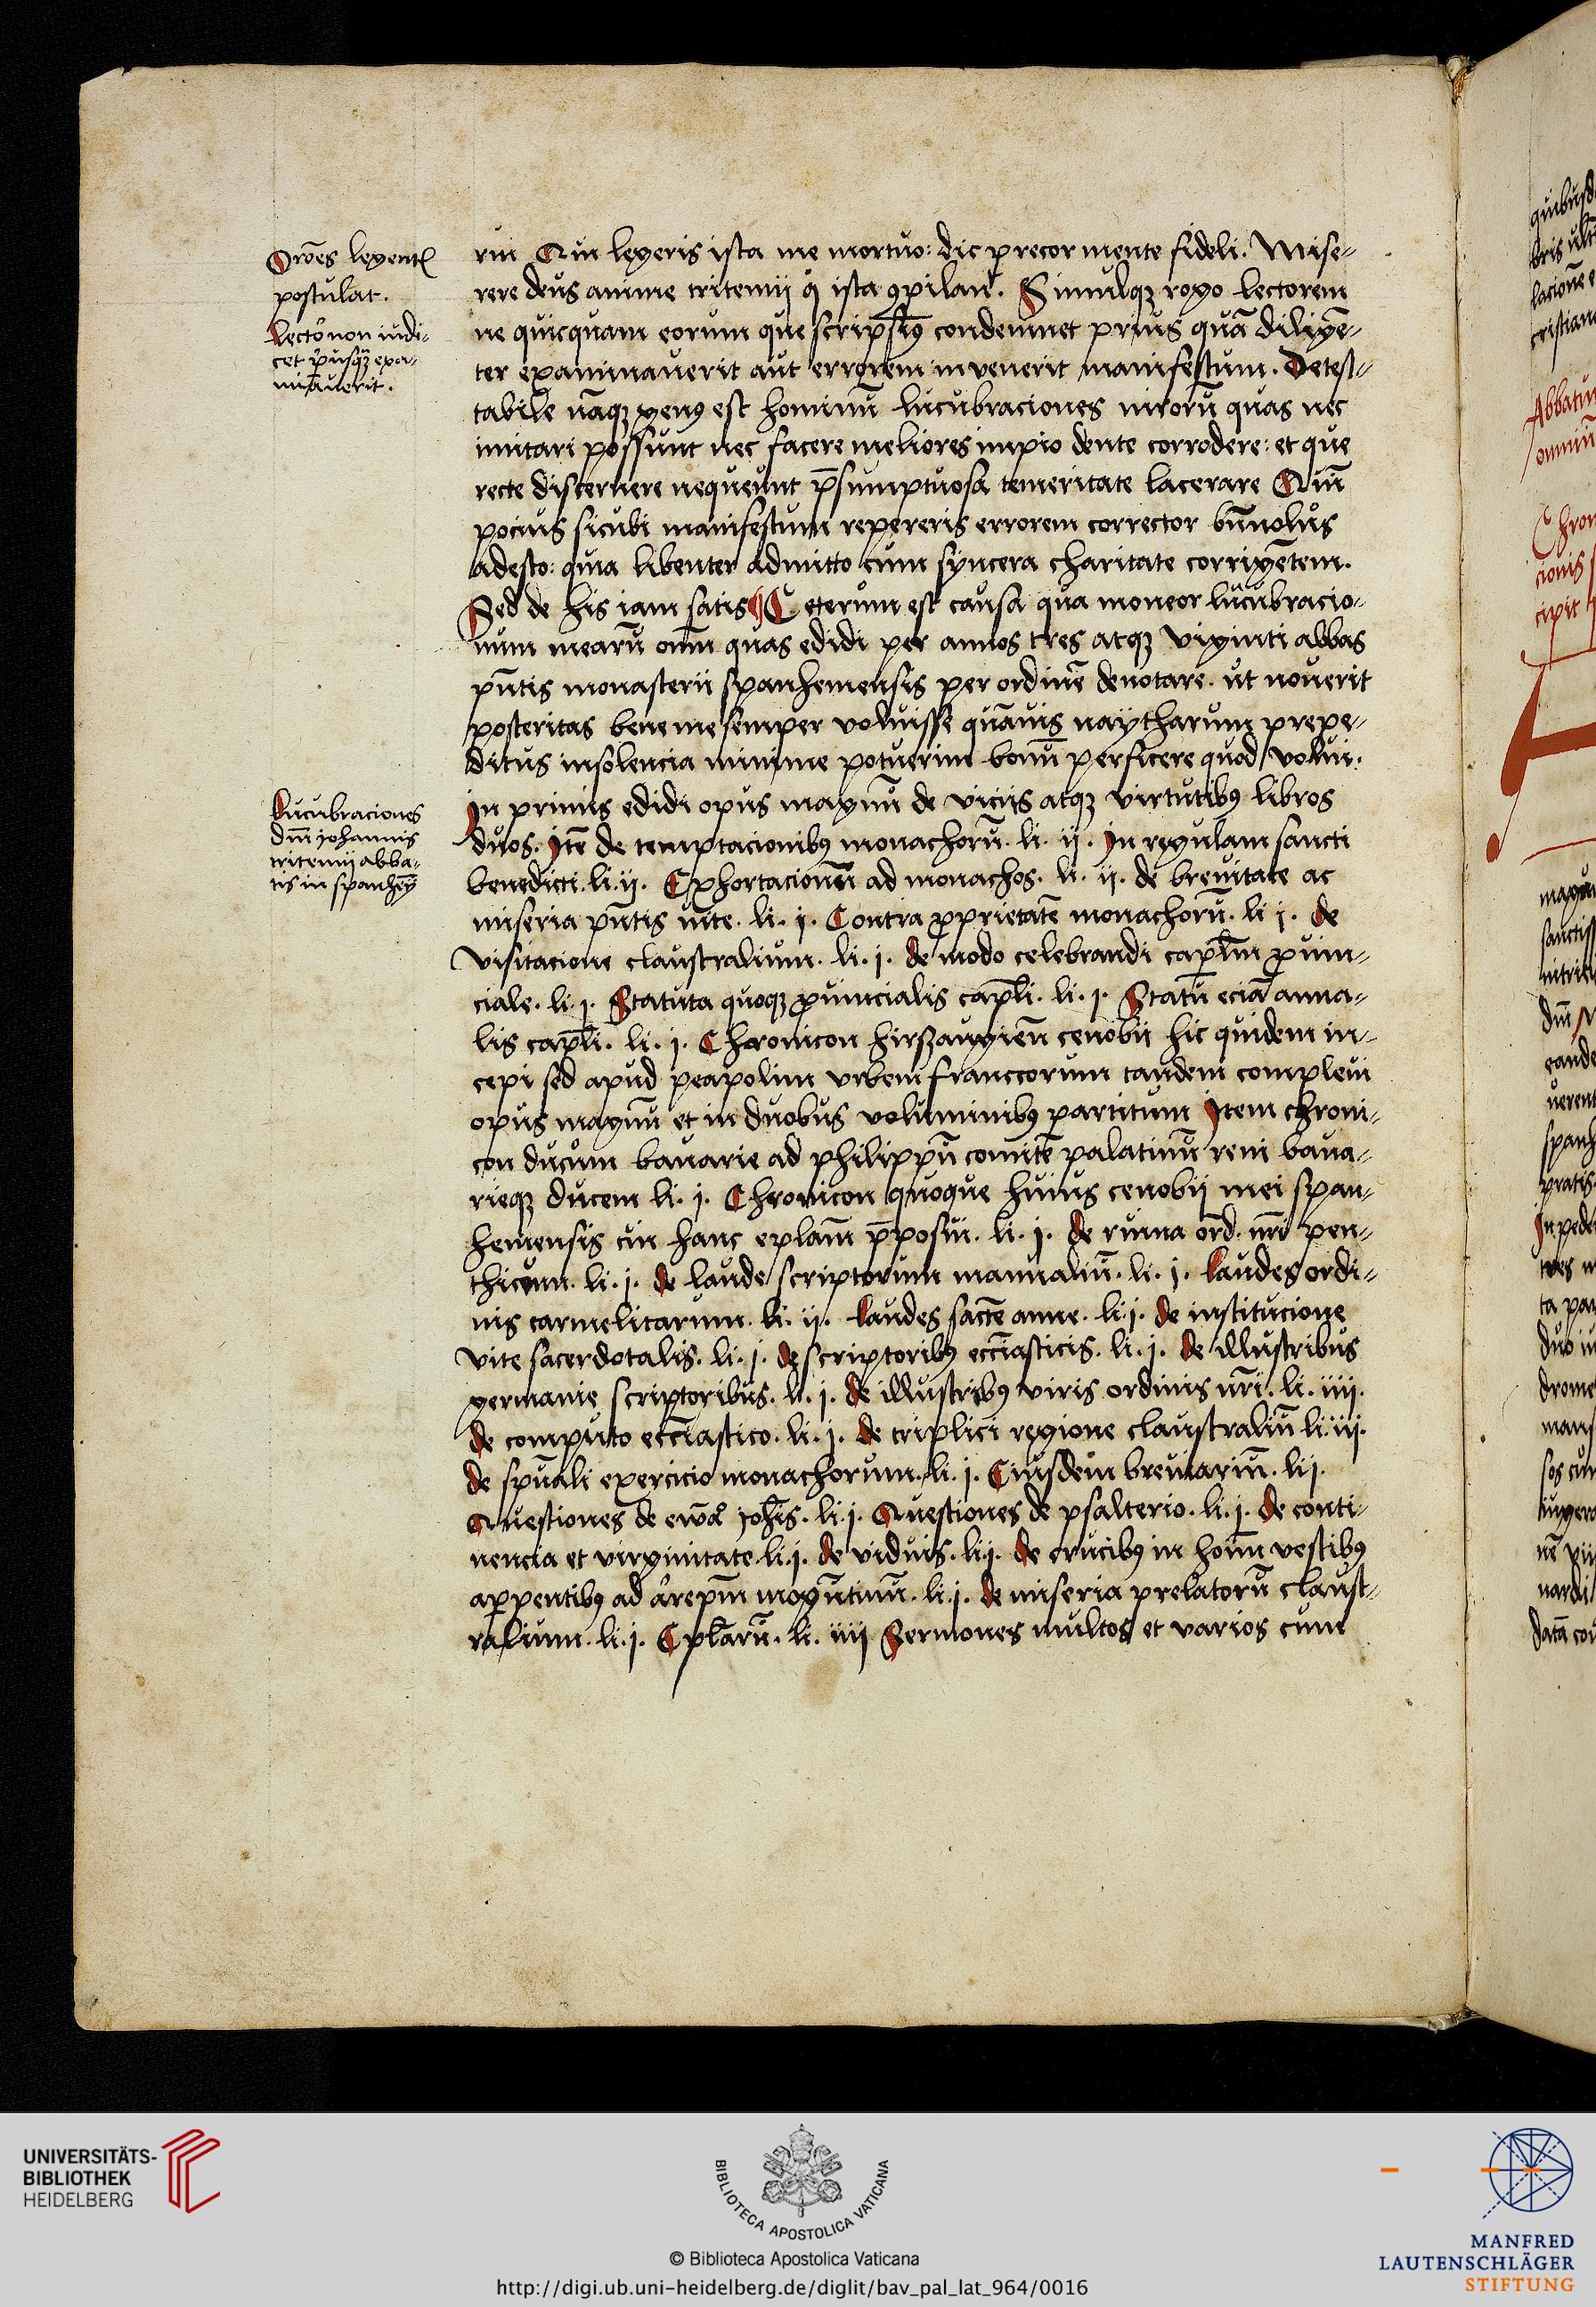 Orōes legentꝭ
postulat.
Lector non iudi-
cet priusqꝫ exa-
minauerit.
rui Qui legeris ista me mortuo: dic precor mente fideli. Mise-
rere deus anime tritemij qͥ ista ꝯpilauit. Simulqꝫ rogo lectorem
ne quicquam eorum que scripsimꝰ condemnet prius quā diligē-
ter examinauerit aut errorem invenerit manifestum. Detest-
tabile nāqꝫ genꝰ est hominū lucubraciones virorū quas nec
imitari possunt nec facere meliores impio dente corrodere: et que
recte discernere nequeunt p̄sumptuosa temeritate lacerare Quī
pocius sicubi manifestum repereris errorem corrector bn̄uolus
adesto: quia libenter admitto cum syncera charitate corrigētem.
Sed de his iam satis Ceterum est causa qua moneor lucubracio-
num mearū om̄m quas edidi per annos tres atqꝫ viginti abbas
pn̄tis monasterii spanhemensis per ordinē denotare. ut nouerit
posteritas bene me semper voluisse quāuis naytharum prepe-
ditus insolencia minime potuerim bonū perficere quod volui.
Lucubraciones
dn̄i johannis
tritemij abba-
tis in spanhey̅
In primis edidi opus magnū de viciis atqꝫ virtutibꝰ libros
duos. Itē de temptacionibꝰ monachorū. li. ij. In regulam sancti
benedicti. li. ij. Exhortacionem ad monachos. li. ij. de breuitate ac
miseria pn̄tis vite. li. j. Contra ꝓprietatē monachorū. li j. de
visitacione claustralium. li. j. de modo celebrandi capl̄m ꝓuin-
ciale. li. j. Statuta quoqꝫ ꝓuincialis capl̄i. li. j. Statū eciā anna-
lis capl̄i. li. j. Chronicon hirsaugien̄ cenobii hic quidem in-
cepi sed apud peapolim vrbem franccorum tandem compleui
opus magnū et in duobus voluminibꝰ partitum Item chroni-
con ducum bauarie ad philippū comitē palatinū reni baua-
rieqꝫ ducem li. j. Chronicon quoque huius cenobij mei span-
hemensis cui hanc epl̄am p̄posui. li. j. de ruina ord. nr̄i pen-
thicum. li. j. de laude scriptorum manualiū. li. j. Laudes ordi-
nis carmelitarum. li. ij. Laudes sācte anne. li. j. de institucione
vite sacerdotalis. li. j. de scriptoribꝰ ecc̄iasticis. li. j. de illustribus
germanie scriptoribus. li. j. de illustribꝰ viris ordinis nr̄i. li. iiij.
de computo ecc̄iastico. li. j. de triplici regione claustraliū li. iij.
de spūali exercicio monachorum. li. j. Eiusdem breuiariū. li j.
Questiones de ewā joh̄is. li. j. Questiones de psalterio. li. j. de conti-
nencia et virginitate. li. j. de viduis. li. j. de crucibꝰ in hoīm vestibꝰ
apparentibꝰ ad arēpm̄ mogūtinū. li. j. de miseria prelatorū claust-
ralium. li. j. Epl̄arū. li. iiij Sermones multos et varios cum
quibusd
bris
lacione
cristian
Abbatu
omniū
Chron
cionis
cipit
A
magn
sanctiss
dn̄i
eande
ueren
spanh
pratis
In pede
ta pa
duo
drome
mans
sos cu
nardi
datā
UNIVERSITÄTS-
BIBLIOTHEK
HEIDELBERG
BIBLIOTECA APOSTOLICA VATICANA
© Biblioteca Apostolica Vaticana
http://digi.ub.uni-heidelberg.de/diglit/bav_pal_lat_964/0016
MANFRED
LAUTENSCHLÄGER
STIFTUNG